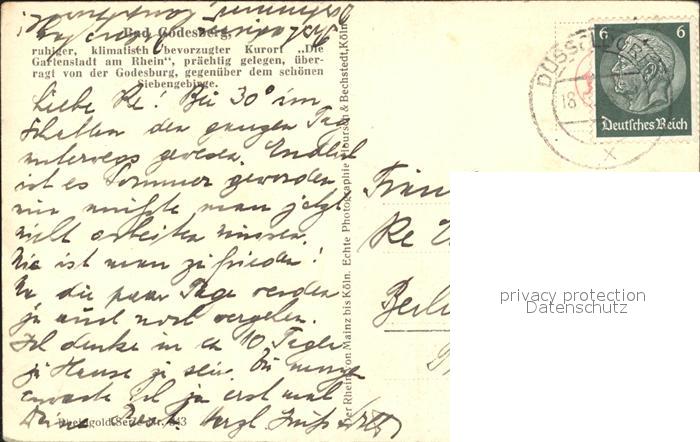 Bad Godesberg,
ruhiger, klimatisch bevorzugter Kurort „Die
Gartenstadt am Rhein“, prächtig gelegen, über-
ragt von der Godesburg, gegenüber dem schönen
Siebengebirge.
Liebe Re! Bei 30° im
Schatten den ganzen Tag
unterwegs gewesen. Endlich
ist es Sommer geworden
nur müßte man jetzt
nicht arbeiten müssen.
Nie ist man zufrieden!
Na die paar Tage werden
ja auch noch vergehen.
Ich denke in ca 10 Tagen
zu Hause zu sein.
ich ja erst mal
Herzl. Gruß
Rheingold-Serie Nr. 343
Rhein von Mainz bis Köln. Echte Photographie Hoursch & Bechstedt, Köln
DÜSSELDORF
18
6 6
Deutsches Reich
Re
Berli
privacy protection
Datenschutz